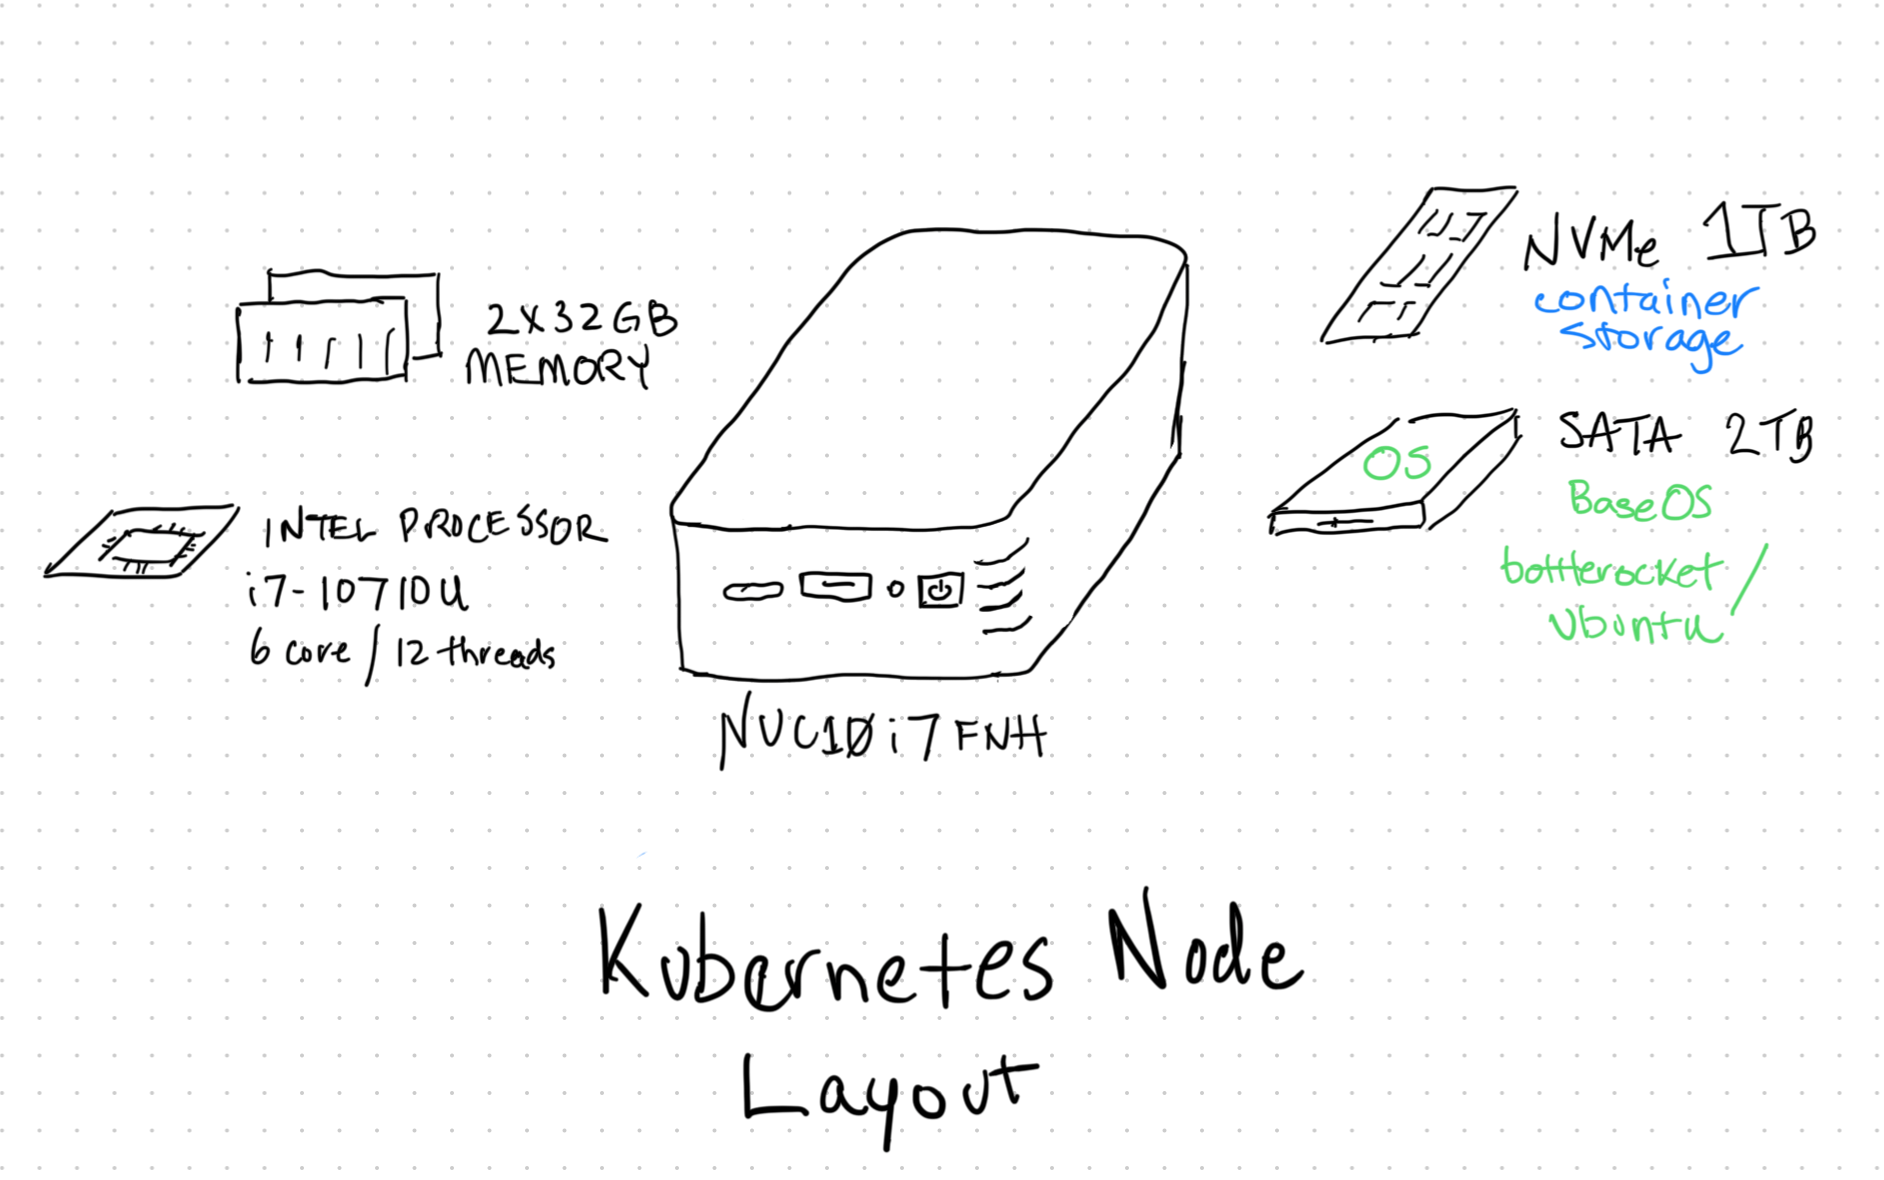 2X32GB
MEMORY
INTEL PROCESSOR
i7-10710U
6 core / 12 threads
NUC10i7FNH
NVMe 1TB
container
storage
OS
SATA 2TB
BaseOS
bottlerocket /
Ubuntu
Kubernetes Node
Layout